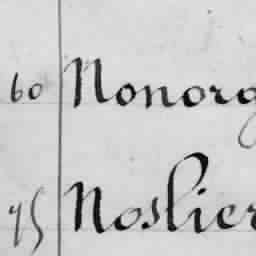 60 Nonorg
75 Noslier